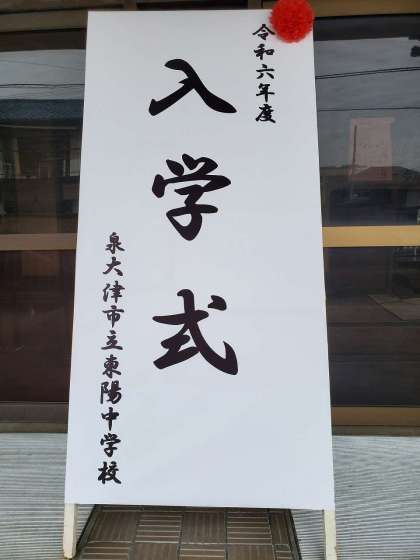 令和六年度
入学式
泉大津市立東陽中学校